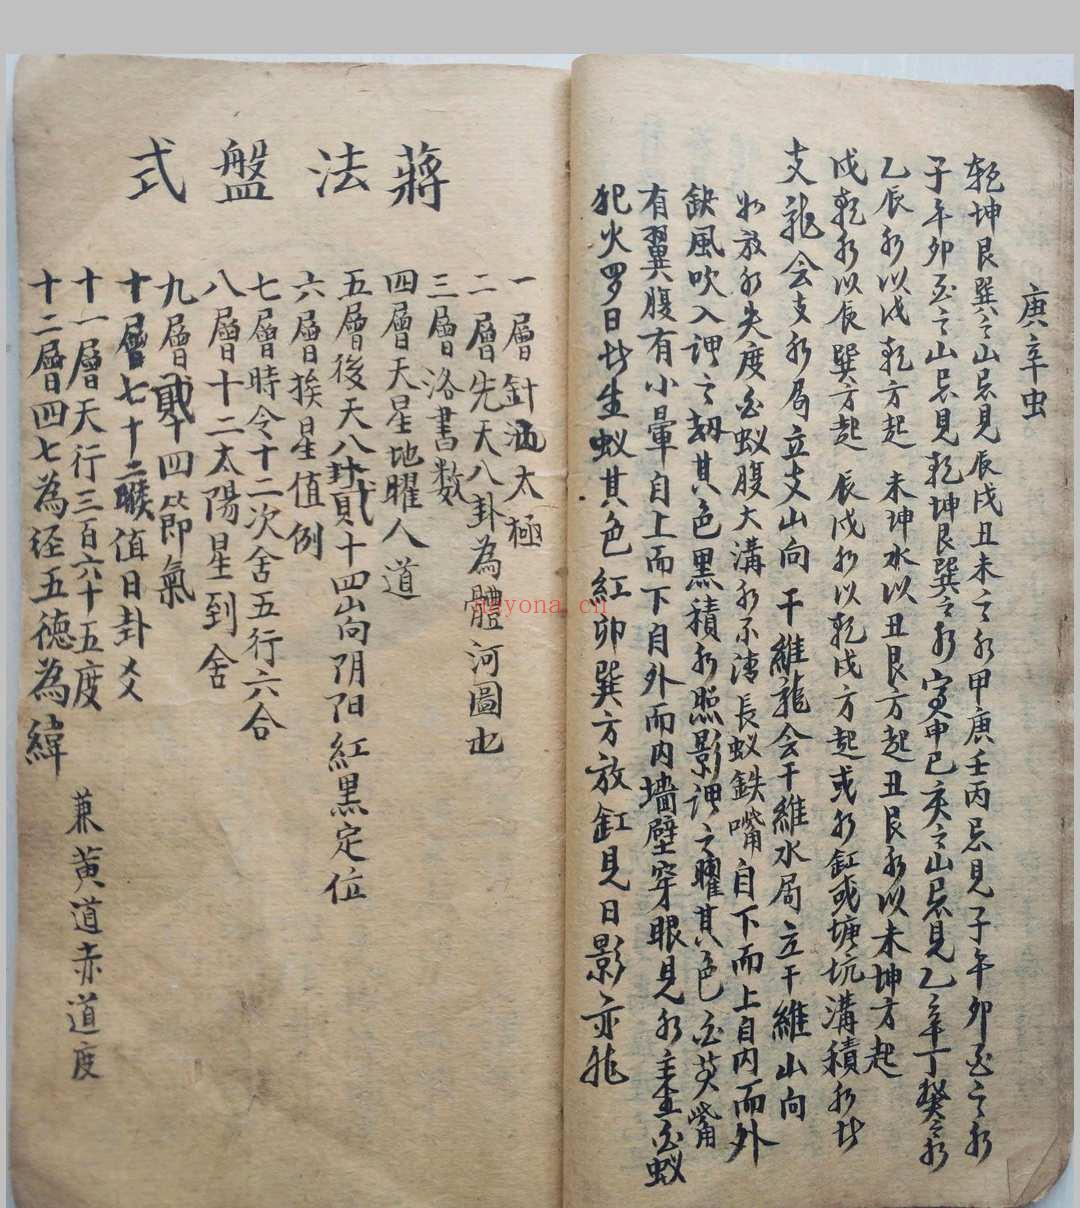 庚辛虫
乾坤艮巽之山忌見辰戌丑未之水甲庚壬丙忌見子午卯酉之水
子午卯酉之山忌見乾坤艮巽之水寅申巳亥之山忌見乙辛丁癸之水
乙辰水以戌乾方起 未坤水以丑艮方起丑艮水以未坤方起
戌乾水以辰巽方起 辰戌水以乾戌方起或水缸或塘坑溝積水出
支龍会支水局立支山向 干維龍会干維水局立干維山向
水放水失度白蚁腹大溝水不清長蚁鉄嘴自下而上自内而外
缺風吹入謂之刼其色黑積水照影謂之曜其色白英嘴
有翼腹有小暈自上而下自外而内墙壁穿眼見水主生白蚁
犯火罗日出生蚁其色紅卯巽方放缸見日影亦能
蔣法盤式
一層針池太極
二層先天八卦為體河圖也
三層洛書数
四層天星地曜人道
五層後天八卦貳十四山向阴阳紅黑定位
六層挨星值例
七層時令十二次舍五行六合
八層十二太陽星到舍
九層貳十四節氣
十層七十二候值日卦爻
十一層天行三百六十五度
十二層四七為経五德為緯
兼黄道赤道度
nayona.cn